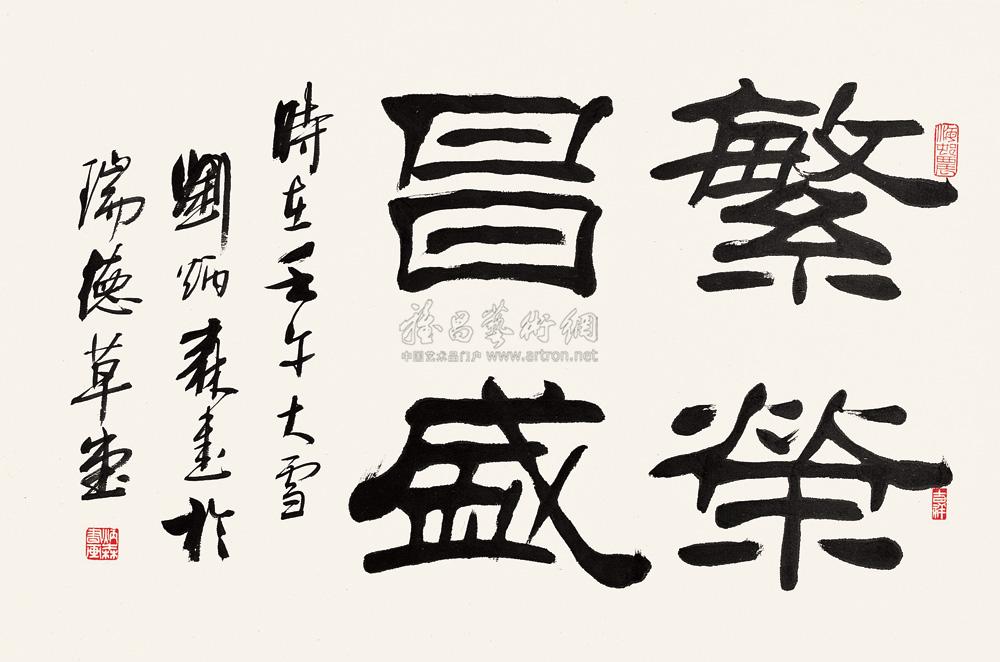 繁榮
昌盛
時在壬午大雪
劉炳森書於
瑞德草堂
炳森書画
雅昌藝術網
中国艺术品门户 www.artron.net